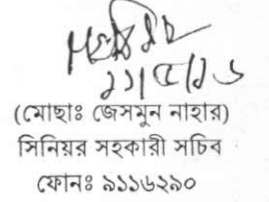 ১১/৫/১৬
(মোছাঃ জেসমুন নাহার)
সিনিয়র সহকারী সচিব
ফোনঃ ৯১১৬২৯০